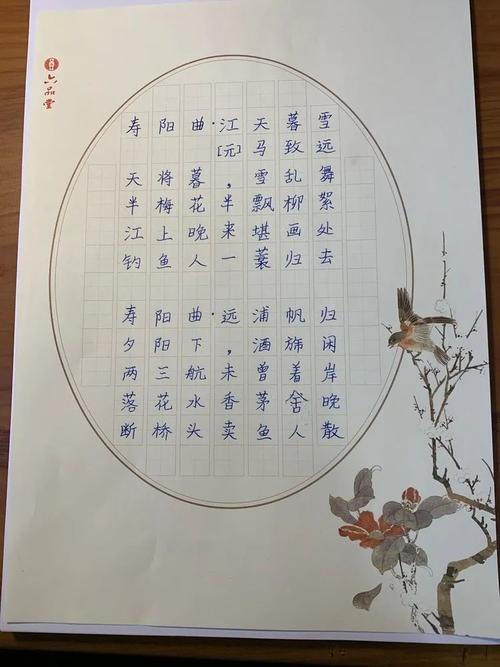 六品堂
寿阳曲·江天暮雪
[元]马致远
天将暮，雪乱舞
半梅花半飘柳絮
江上晚来堪画处
钓鱼人一蓑归去
寿阳曲·远浦帆归
夕阳下，酒旆闲
两三航未曾着岸
落花水香茅舍晚
断桥头卖鱼人散